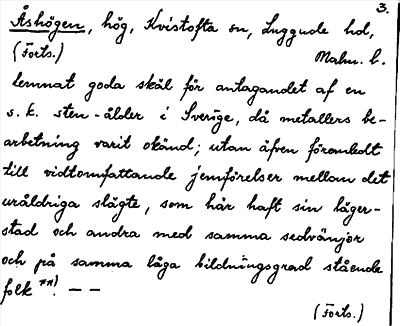 3.
Åshögen, hög, Kvistofta sn, Luggude hd,
(Forts.) Malm. l.
lemnat goda skäl för antagandet af en
s.k. sten-ålder i Sverige, då metallers be-
arbetning varit okänd; utan äfven föranledt
till vidtomfattande jemförelser mellan det
uråldriga slägte, som här haft sin läger-
stad och andra med samma sedvänjor
och på samma låga bildningsgrad stående
folk **)! — —
(Forts.)